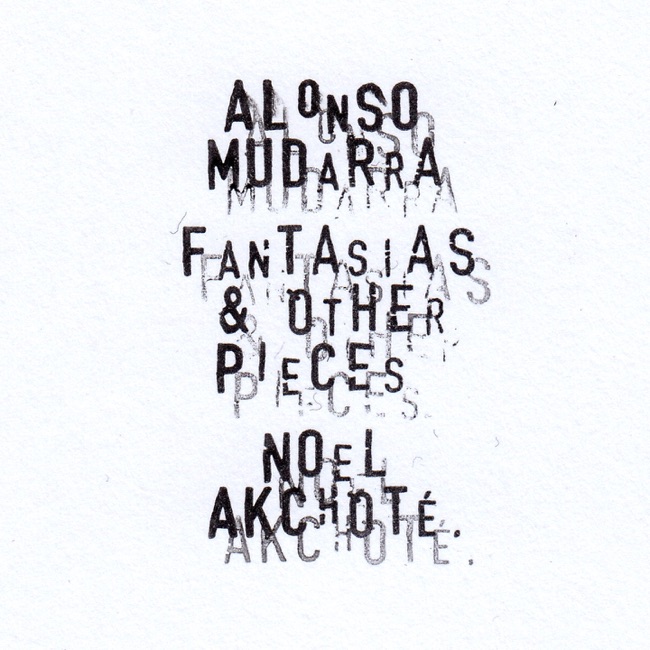 ALONSO
MUDARRA
FANTASIAS
& OTHER
PIECES
NOEL
AKCHOTÉ.